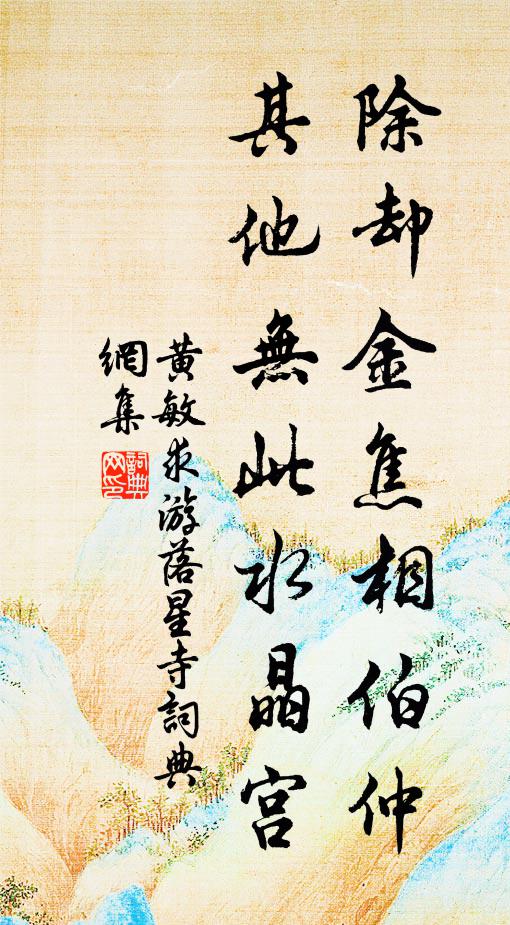 除却金焦相伯仲
其他無此水晶宮
黄敏求游落星寺詞典
網集
詞典
网印